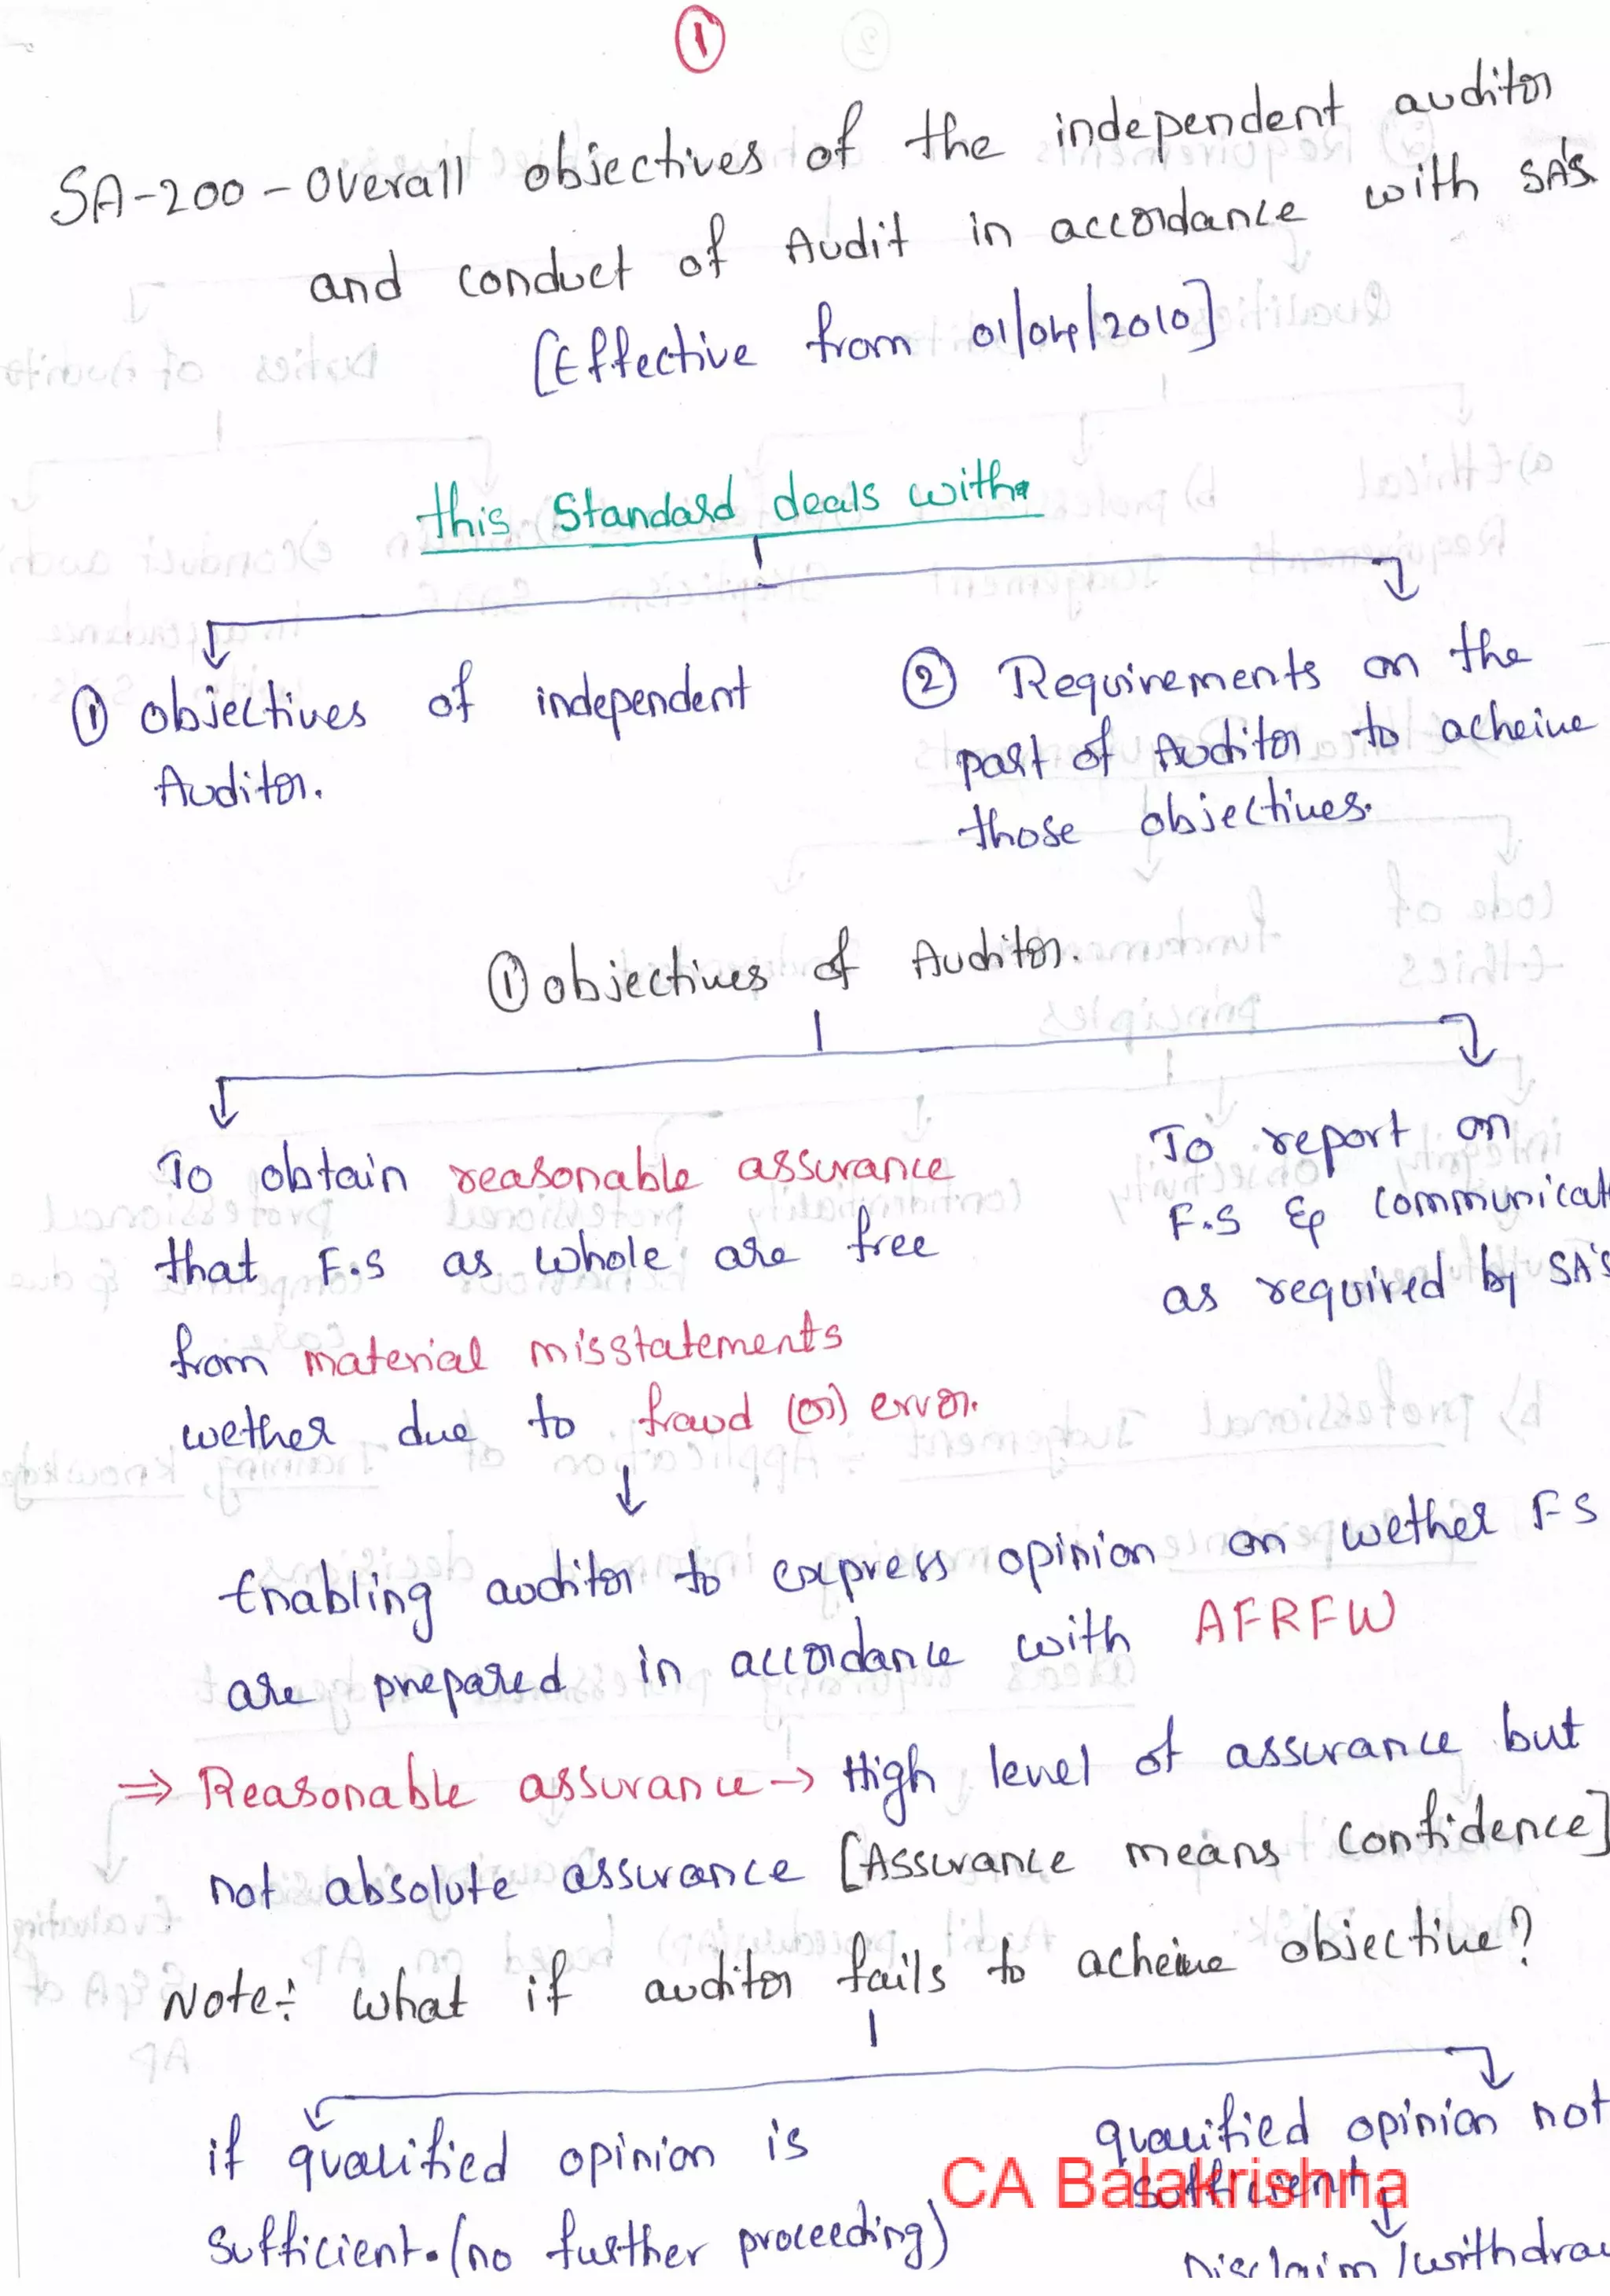 1
SA-200 - Overall objectives of the independent auditor
and conduct of Audit in accordance with SA's
[Effective from 01/04/2010]
this Standard deals with
① objectives of independent
Auditor.
② Requirements on the
part of Auditor to acheive
those objectives.
① objectives of Auditor.
To obtain reasonable assurance
that F.S as whole are free
from material misstatements
wether due to fraud (or) error.
To report on
F.S & communicat
as required by SA's
Enabling auditor to express opinion on wether FS
are prepared in accordance with AFRFW
⇒ Reasonable assurance → High level of assurance but
not absolute assurance [Assurance means confidence]
Note:- what if auditor fails to acheive objective?
if qualified opinion is
sufficient. (no further proceeding)
qualified opinion not
sufficient
Disclaim/withdraw
CA Balakrishna